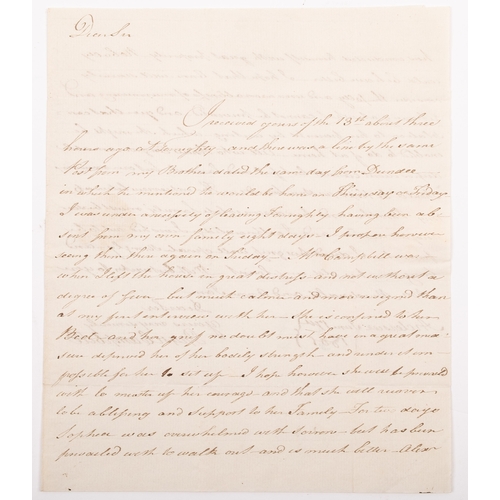 Dear Sir
I received yours of the 13th about three
hours ago at and there was a line by the same
Post from my Brother dated the same day from Dundee
in which he mentioned he would be here on Thursday or Friday
I was under a necessity of leaving having been ab
sent from my own family eight days I propose however
seeing them there again on Friday Mrs Campbell was
when I left the house in great distress and not without a
degree of fever but much calmer and more resigned than
at my first interview with her She is confined to her
Bed and her grief no doubt must have in a great mea
sure deprived her of her bodily strength and under it im
possible for her to set up I hope however she will be prevailed
with to muster up her courage and that she will recover
to be a blessing and support to her Family For two days
Sophia was overwhelmed with sorrow but has been
prevailed with to walk out and is much better Alexr